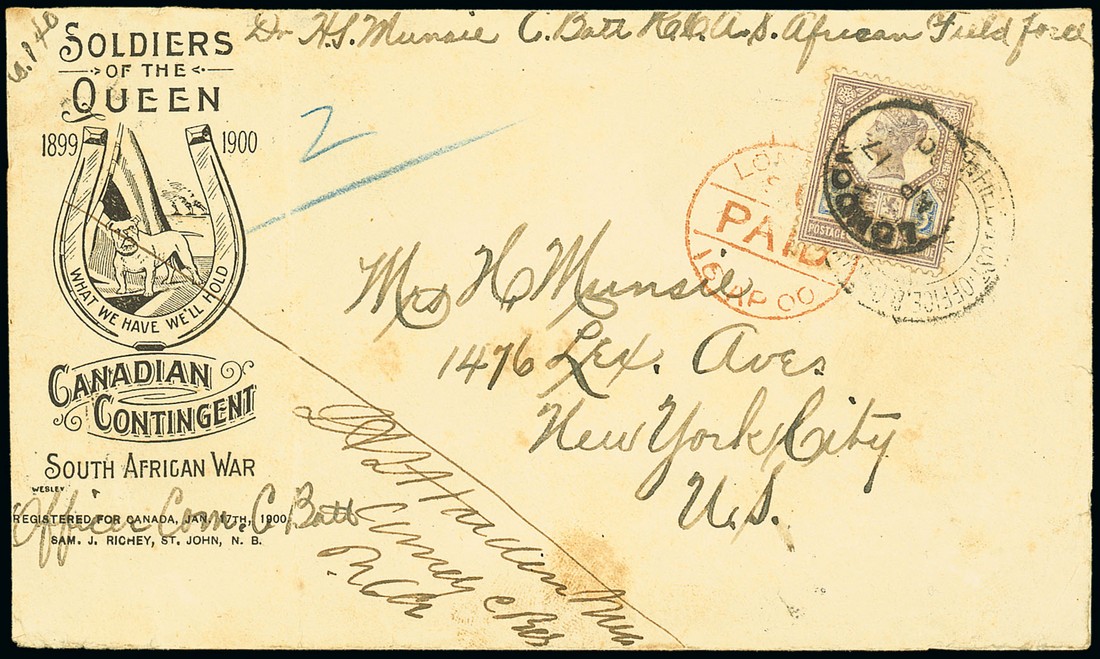 SOLDIERS
OF THE
QUEEN
1899 1900
WHAT WE HAVE WE'LL HOLD
CANADIAN
CONTINGENT
SOUTH AFRICAN WAR
WESLEY
REGISTERED FOR CANADA, JAN. 17TH, 1900
SAM. J. RICHEY, ST. JOHN, N. B.
Officer Com. C. Batt
Dr H.S. Munsie C. Batt R.C.A. S. African Field force
2
PAID
16 AP 00
LONDON
AP 17
POSTAGE
Mrs H. Munsie
1476 Lex. Aves
New York City
U.S.
Comdg C Bty
RCA